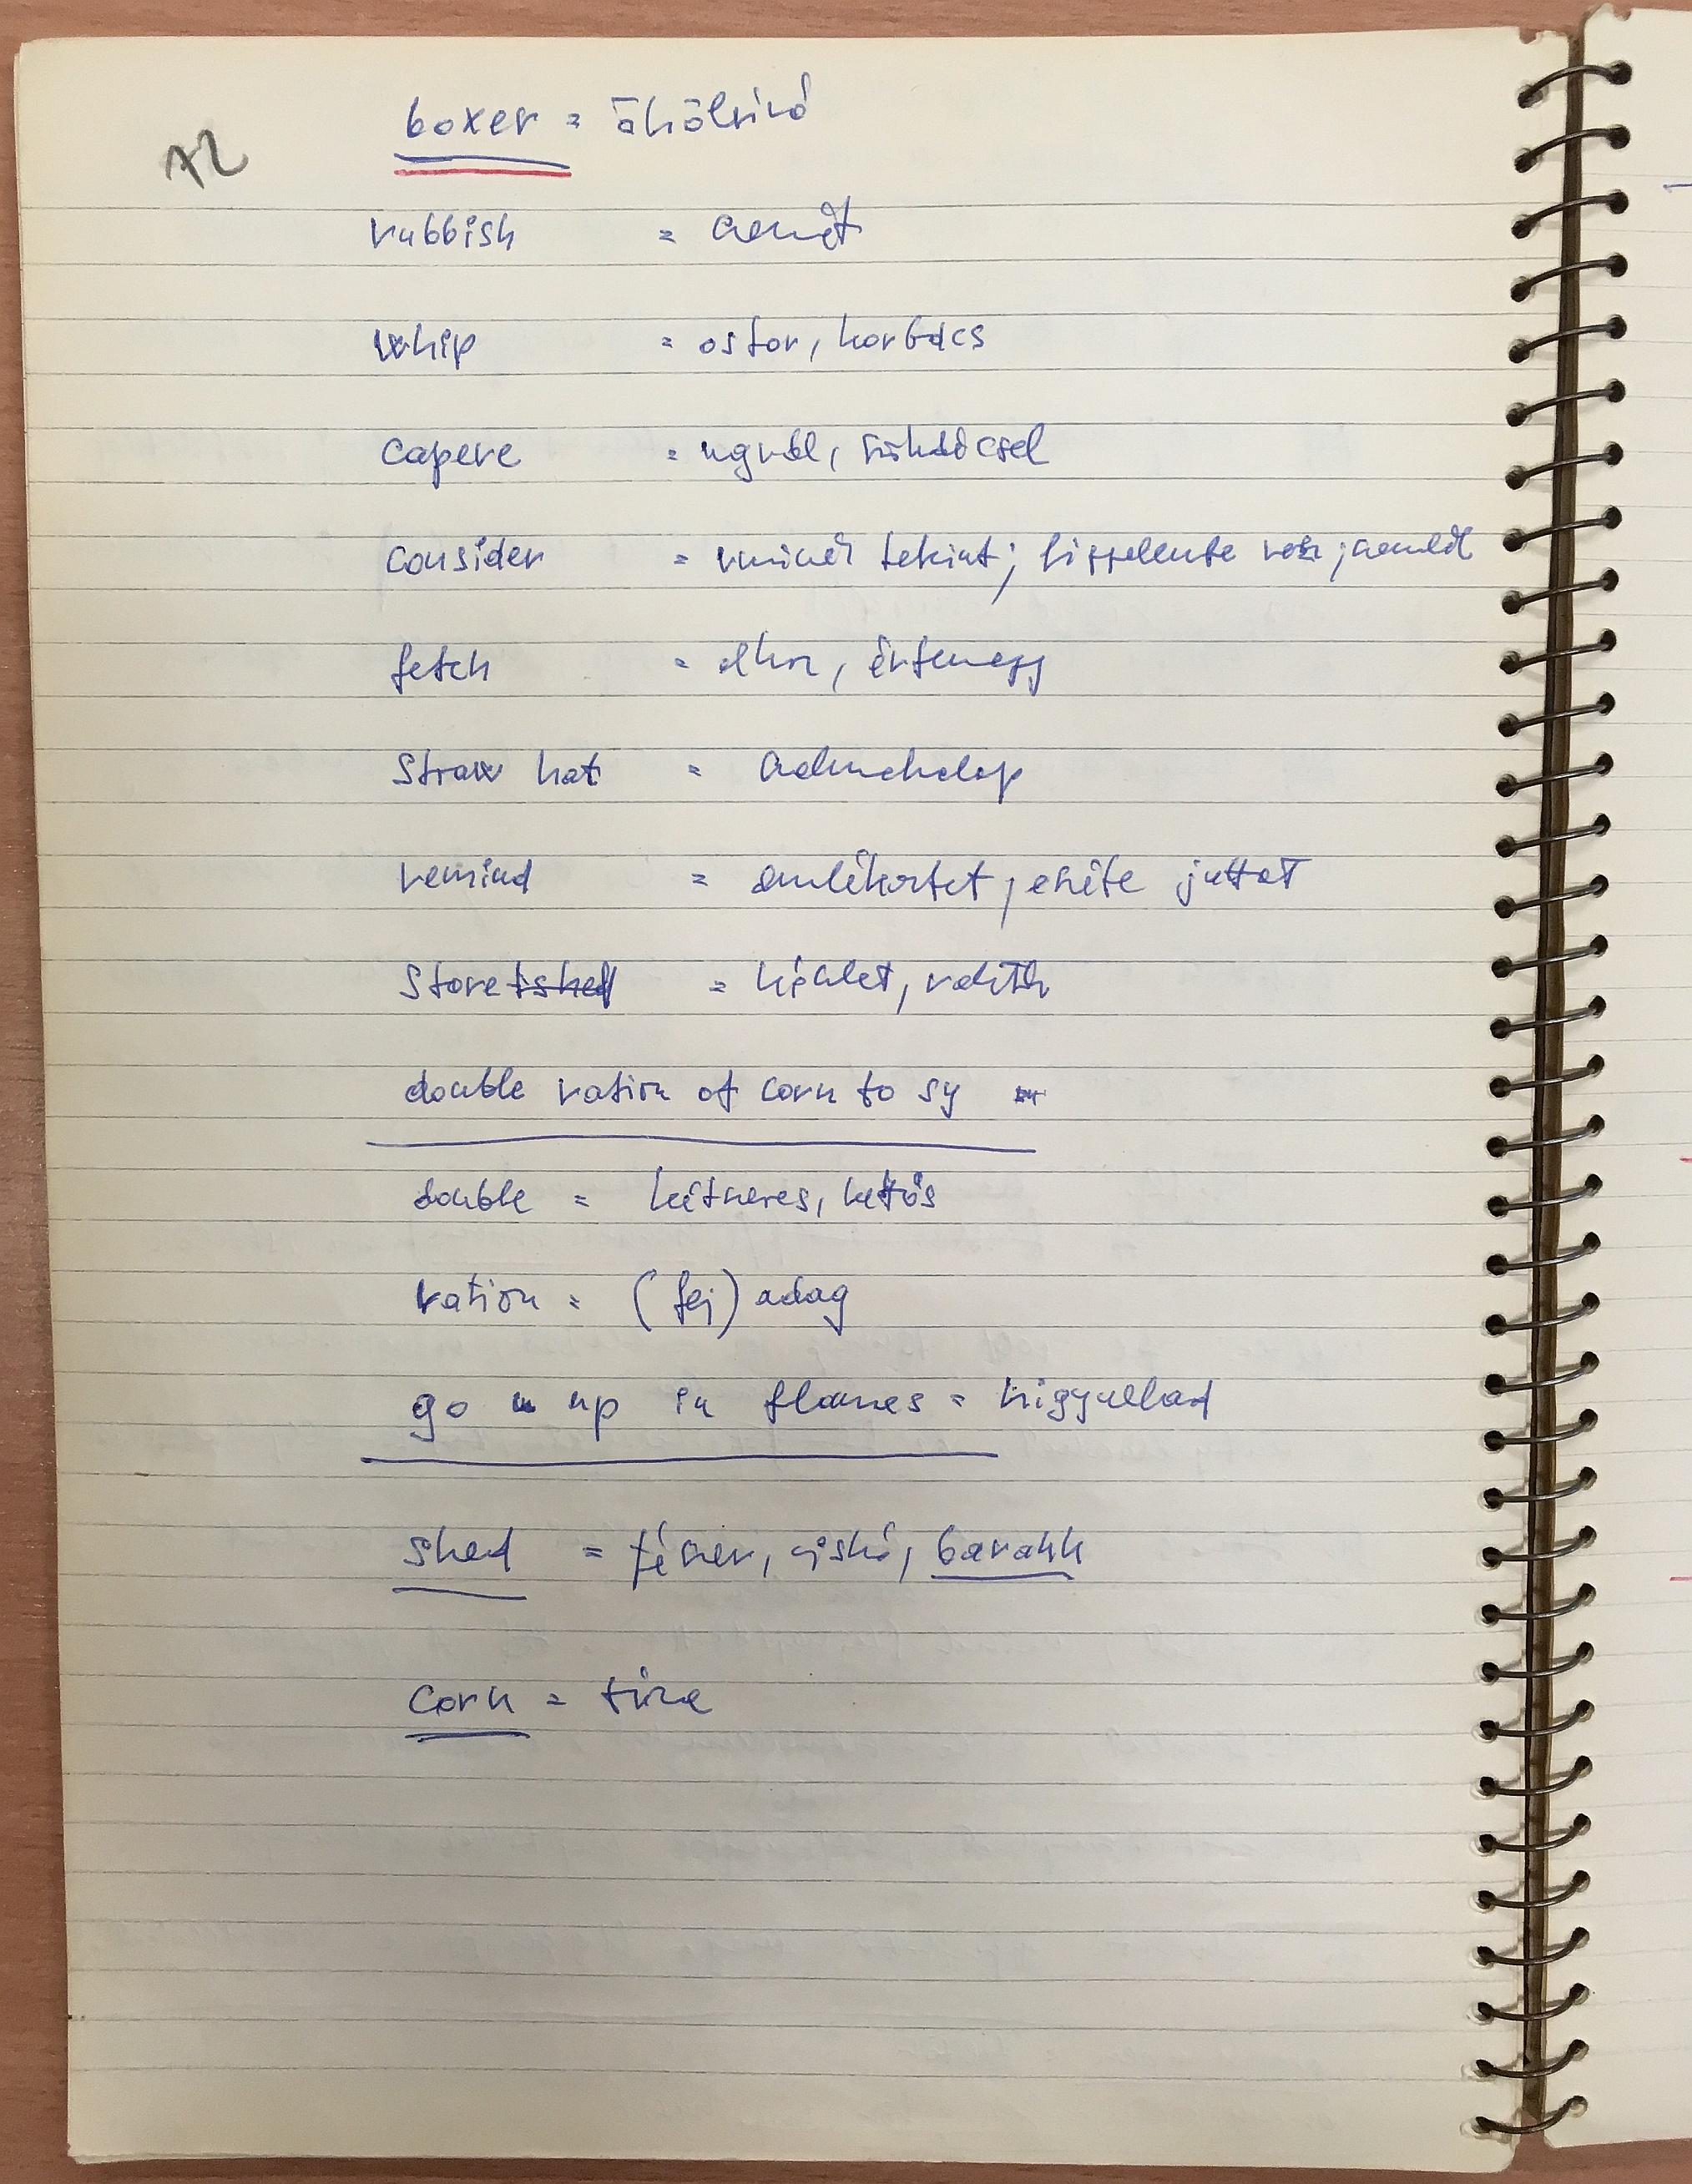 boxer = ökölvívó
A2
rubbish = szemét
whip = ostor, korbács
capere = ugrál, szökdécsel
consider = vminek tekint; figyelembe vesz;
fetch = elhoz, érte megy
straw hat = szalmakalap
remind = emlékeztet, eszébe juttat
store = készlet, raktár
double ration of corn to sy
double = kétszeres, kettős
ration = (fej) adag
go up in flames = kigyullad
shed = fészer, viskó, barakk
corn = búza